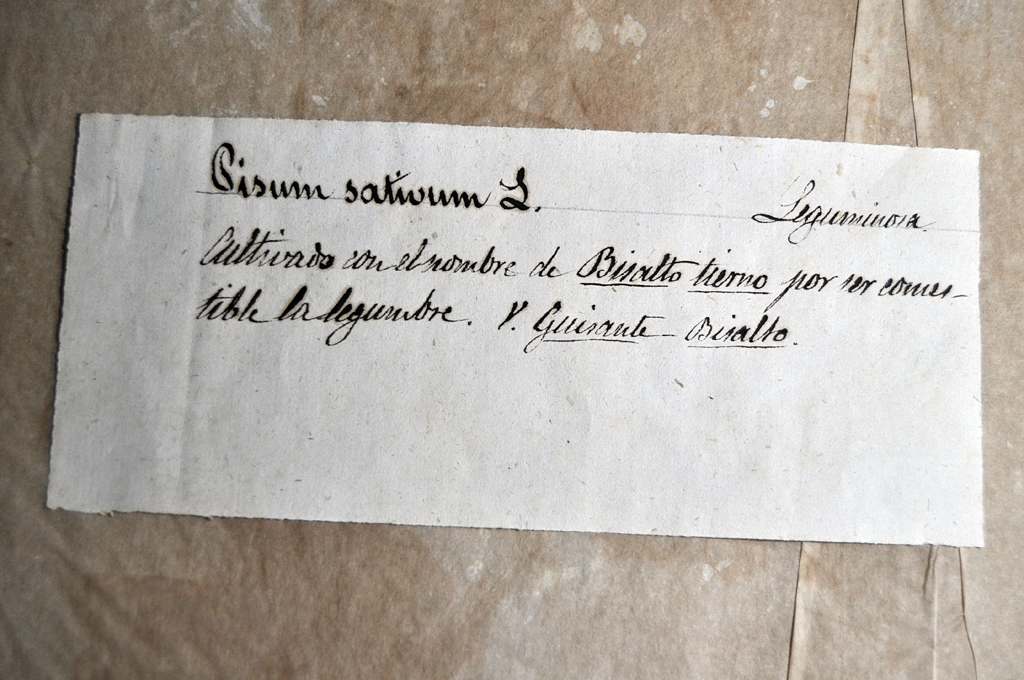 Pisum sativum L. Leguminosa.
Cultivado con el nombre de Bisalto tierno por ser comes-
tible la legumbre. V. Guisante - Bisalto.